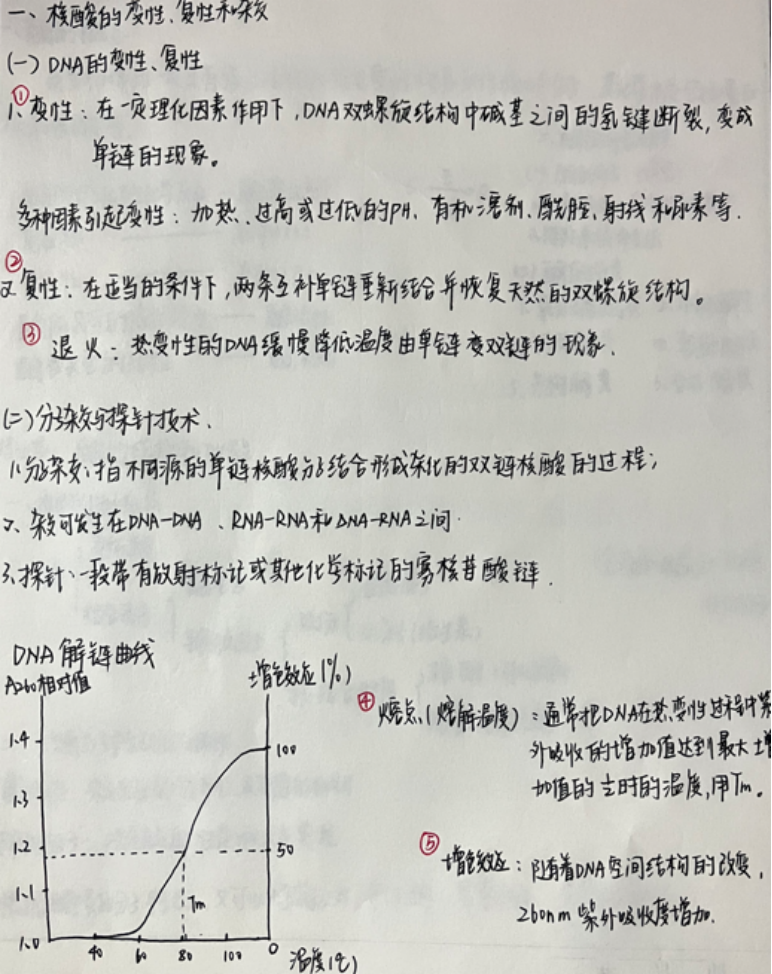 一、核酸的变性、复性和杂交
(一) DNA的变性、复性
①
1、变性：在一定理化因素作用下,DNA双螺旋结构中碱基之间的氢键断裂,变成
单链的现象。
多种因素引起变性：加热、过高或过低的PH、有机溶剂、酰胺、射线和尿素等.
②
2、复性：在适当的条件下,两条互补单链重新结合并恢复天然的双螺旋结构。
③ 退火：热变性的DNA缓慢降低温度由单链变双链的现象.
(二)分子杂交与探针技术.
1、分子杂交:指不同源的单链核酸分子结合形成杂化的双链核酸的过程;
2、杂交可发生在DNA-DNA、RNA-RNA和DNA-RNA之间.
3、探针:一段带有放射标记或其他化学标记的寡核苷酸链.
DNA解链曲线
A260相对值 增色效应(%)
1.4 100
1.3
1.2 50
1.1 Tm
1.0 40 60 80 100 0
温度(℃)
④ 熔点(熔解温度)：通常把DNA在热变性过程中紫
外吸收的增加值达到最大增
加值的½时的温度,用Tm。
⑤ 增色效应：随着DNA空间结构的改变,
260nm紫外吸收度增加.